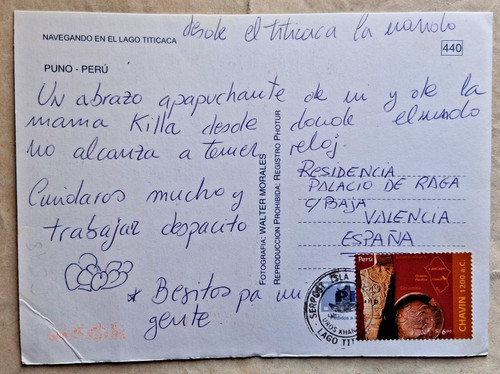 desde el titicaca la mando
NAVEGANDO EN EL LAGO TITICACA
440
PUNO - PERÚ
Un abrazo apapuchante de mi y de la
mama Killa desde donde el mundo
no alcanza a tener reloj.
Cuidaros mucho y
trabajar despacito
* Besitos pa mi
gente
FOTOGRAFIA: WALTER MORALES
REPRODUCCION PROHIBIDA: REGISTRO PHOTUR
RESIDENCIA
PALACIO DE RAGA
C/ BAJA
VALENCIA
ESPAÑA
SERPOST ISLA
UROS KHAN
LAGO TITI
Perú
CHAVIN 1200 a.C.